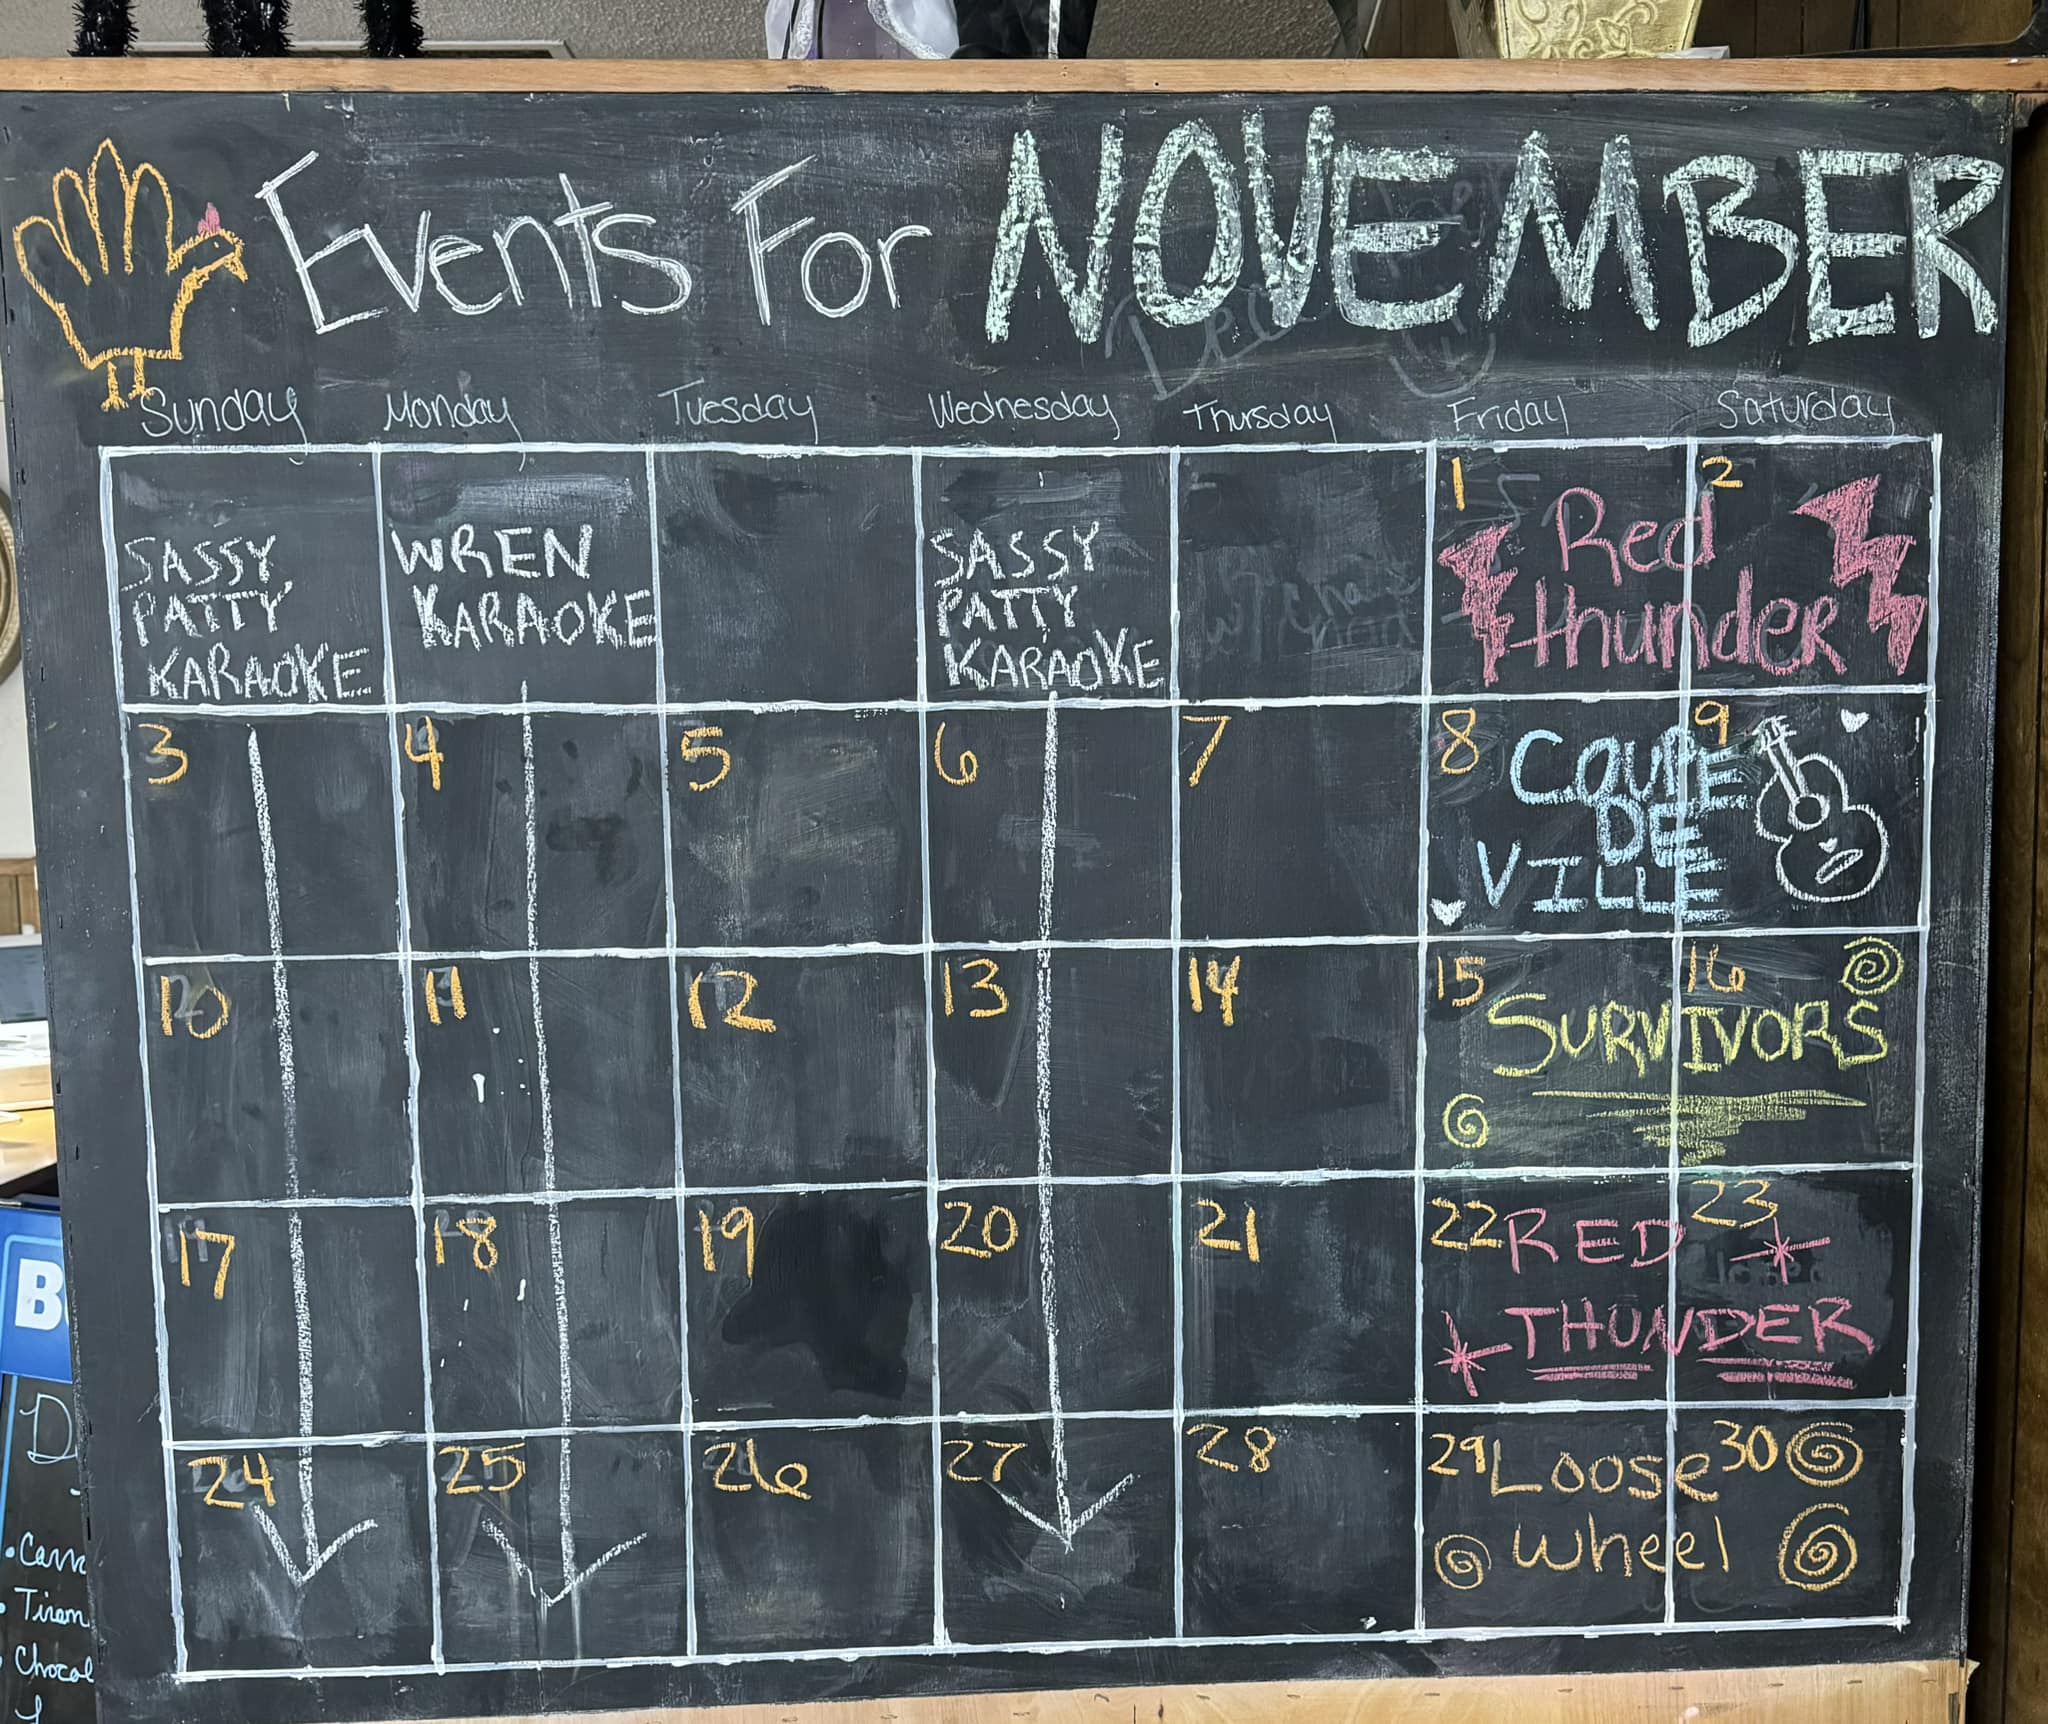 Events For NOVEMBER
Sunday Monday Tuesday Wednesday Thursday Friday Saturday
SASSY
PATTY
KARAOKE
WREN
KARAOKE
SASSY
PATTY
KARAOKE
1 2
Red
thunder
3 4 5 6 7 8 9
COUPE
DE
VILLE
10 11 12 13 14 15 16
SURVIVORS
17 18 19 20 21 22 23
RED
THUNDER
24 25 26 27 28 29 30
Loose
wheel